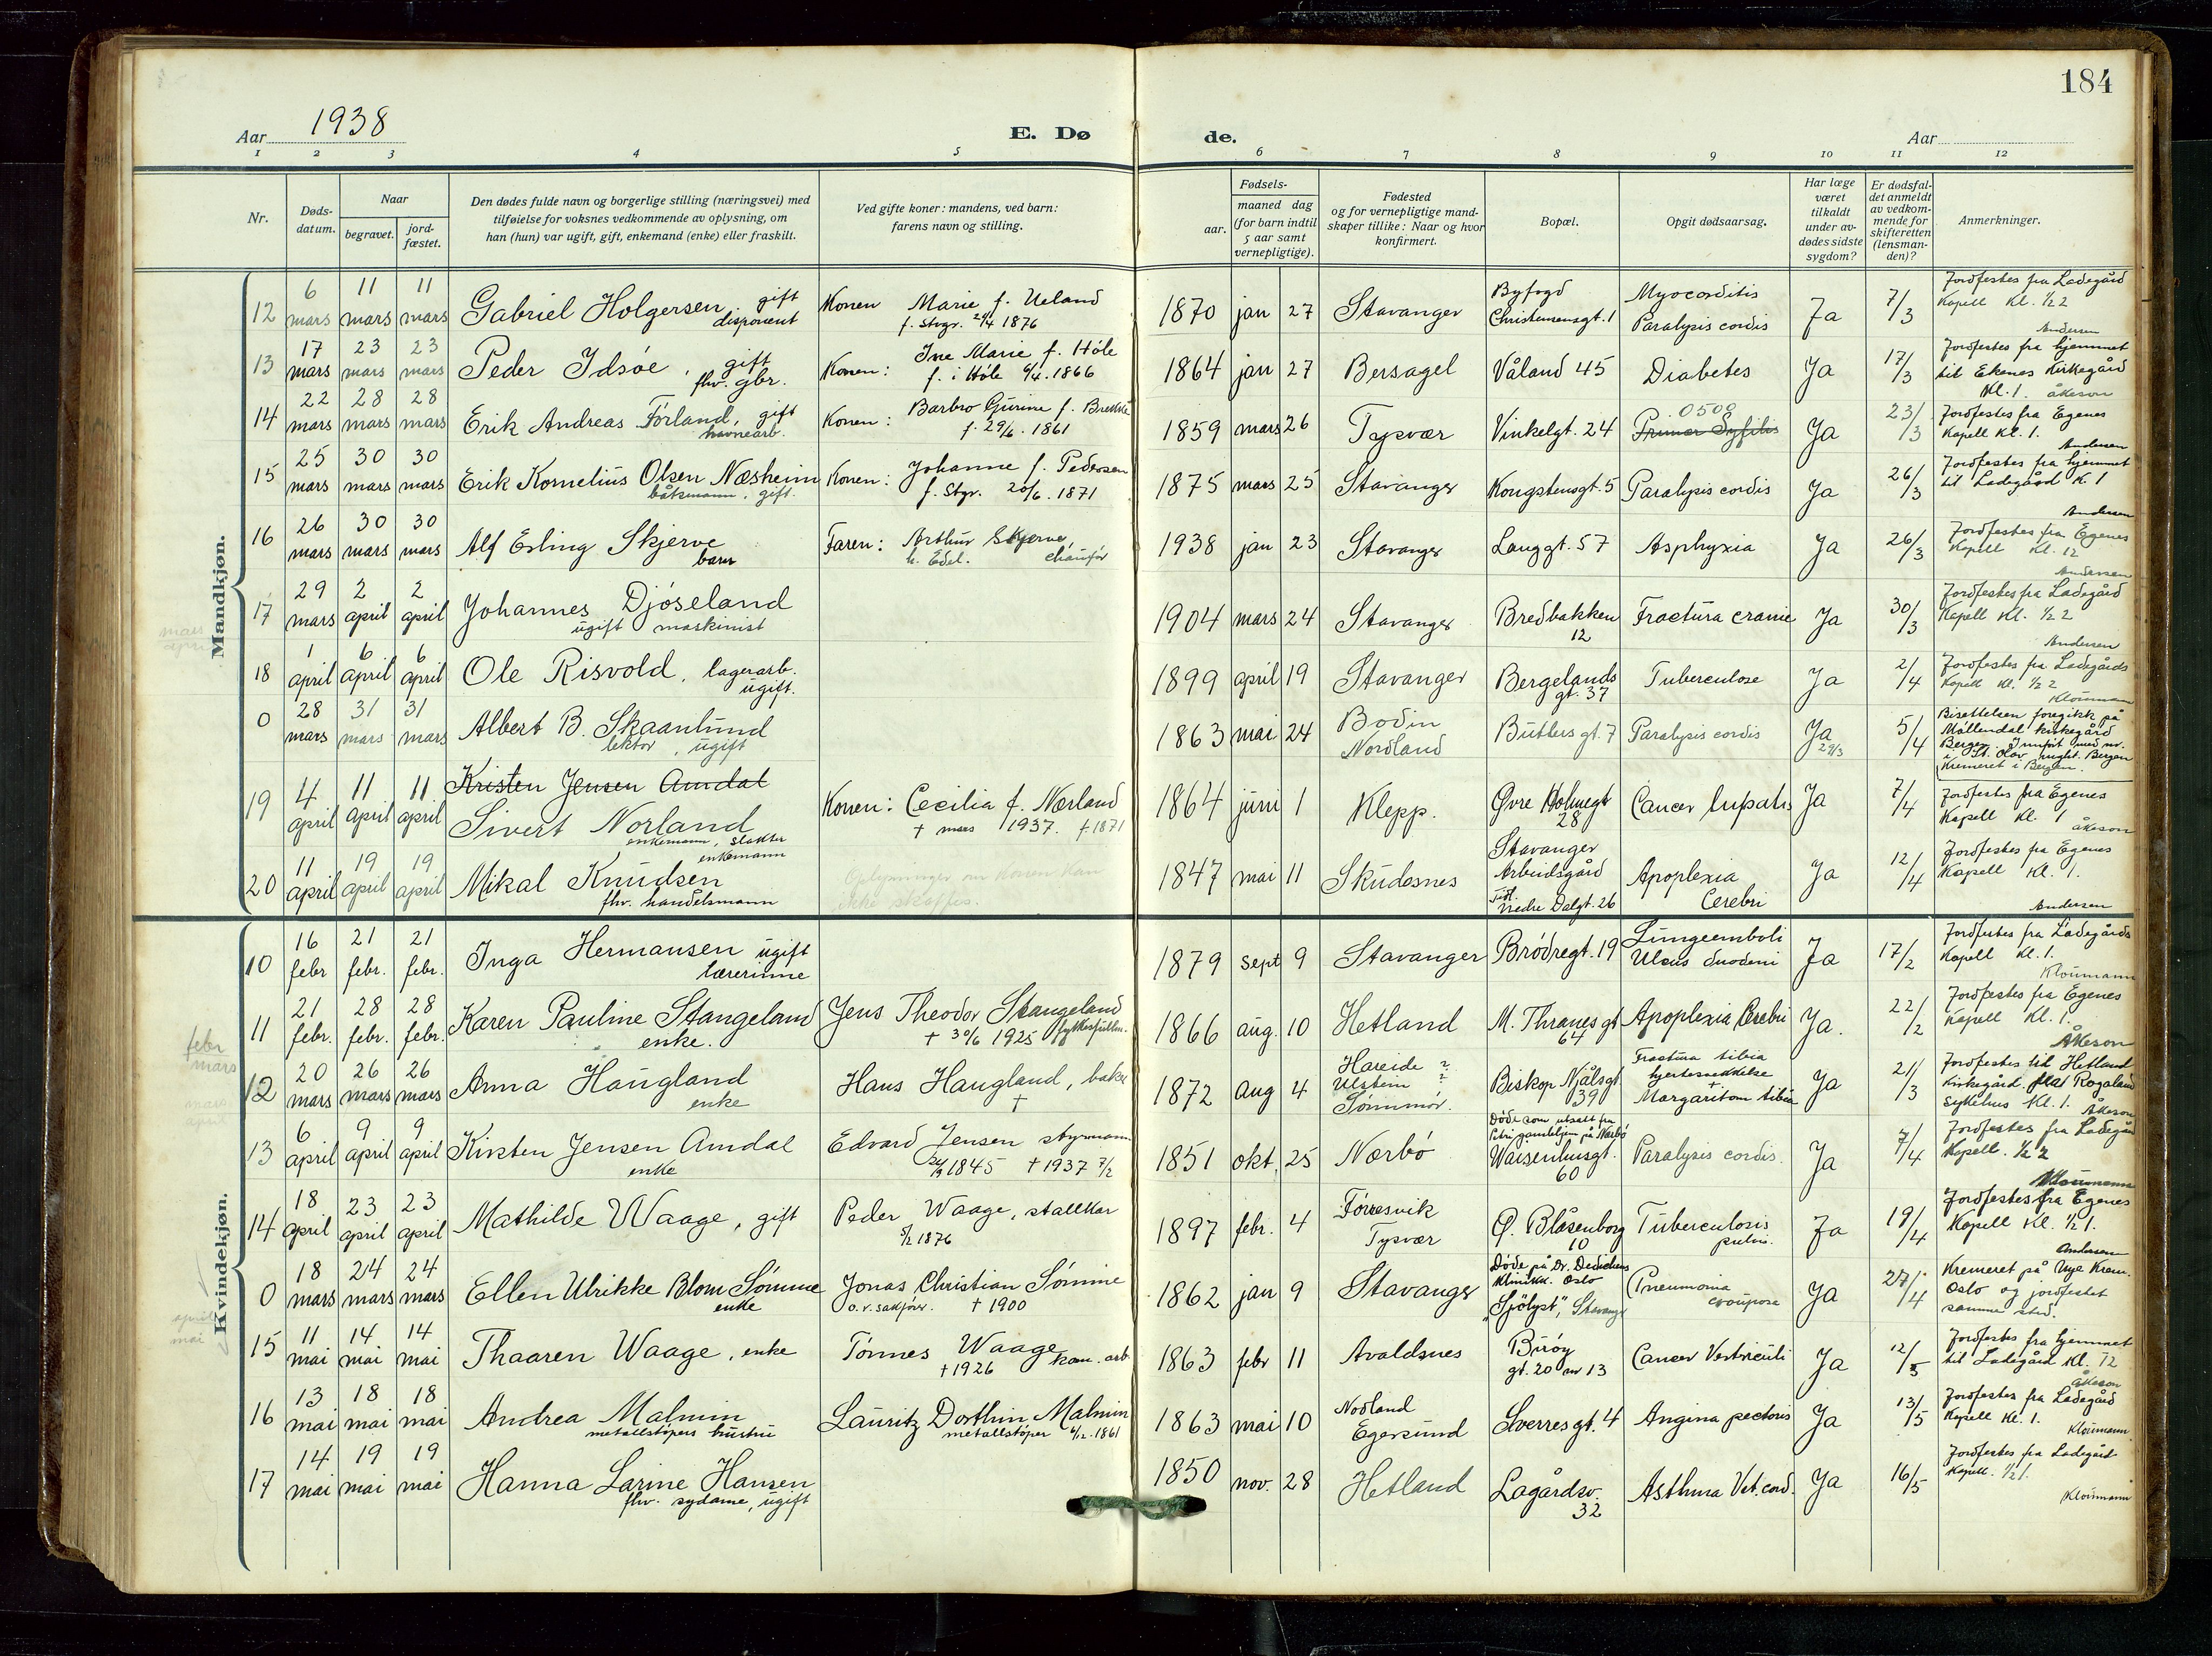 184
Aar 1938
E. Dø de.
Aar
1 2 3 4 5 6 7 8 9 10 11 12
Nr.
Døds-datum.
Naar
begravet.
jord-fæstet.
Den dødes fulde navn og borgerlige stilling (næringsvei) med
tilføielse for voksnes vedkommende av oplysning, om
han (hun) var ugift, gift, enkemand (enke) eller fraskilt.
Ved gifte koner: mandens, ved barn:
farens navn og stilling.
Fødsels-
aar.
maaned dag
(for barn indtil
5 aar samt
vernepligtige).
Fødested
og for vernepligtige mand-
skaper tillike: Naar og hvor
konfirmert.
Bopæl.
Opgit dødsaarsag.
Har læge
været
tilkaldt
under av-
dødes sidste
sygdom?
Er dødsfal-
det anmeldt
av vedkom-
mende for
skifteretten
(lensman-
den)?
Anmerkninger.
Mandkjøn.
12 6 mars 11 mars 11 mars Gabriel Holgersen, gift disponent Konen Marie f. Ueland f. Stvgr. 1876 1870 jan 27 Stavanger Byfogd Christensensgt. 1 Myocorditis Paralysis cordis Ja 7/3 Jordfestes fra Ladegård Kapell Kl. 1/2 2 Andersen
13 17 mars 23 mars 23 mars Peder Idsøe, gift fhv. gbr. Konen: Ine Marie f. Høle f. i Høle 6/4. 1866 1864 jan 27 Bersagel Våland 45 Diabetes Ja 17/3 Jordfestes fra hjemmet til Ekenes Kirkegård Kl. 1. Åkeson
14 22 mars 28 mars 28 mars Erik Andreas Førland, gift havnearb. Konen: Barbro Gurine f. f. 29/6. 1861 1859 mars 26 Tysvær Vinkelgt. 24 0500 Primær Syfilis Ja 23/3 Jordfestes fra Egenes Kapell Kl. 1. Andersen
15 25 mars 30 mars 30 mars Erik Kornelius Olsen Næsheim båtsmann, gift. Konen: Johanne f. Pedersen f. Stgr. 20/6. 1871 1875 mars 25 Stavanger Kongstensgt. 5 Paralysis cordis Ja 26/3 Jordfestes fra hjemmet til Ladegård K. 1 Andersen
16 26 mars 30 mars 30 mars Alf Erling Skjerve barn Faren: Arthur Skjerve, h. Edel. chaufør 1938 jan 23 Stavanger Langgt. 57 Asphyxia Ja 26/3 Jordfestes fra Egenes Kapell Kl. 12 Andersen
17 29 mars 2 april 2 april Johannes Djøseland ugift maskinist 1904 mars 24 Stavanger Bredbakken 12 Fractura cranie Ja 30/3 Jordfestes fra Ladegård Kapell Kl. 1/2 2 Andersen
18 1 april 6 april 6 april Ole Risvold, lagerarb. ugift. 1899 april 19 Stavanger Bergelands gt. 37 Tuberculose Ja 2/4 Jordfestes fra Ladegårds Kapell Kl. 1/2 2 Kloumann
0 28 mars 31 mars 31 mars Albert B. Skaanlund lektor, ugift 1863 mai 24 Bodin Nordland Butlers gt. 7 Paralysis cordis Ja 29/3 5/4 Bisettelsen foregikk på Møllendal kirkegård Bergen. Innført med nr. i St. Olav menight. Bergen Kremeret i Bergen.
19 4 april 11 april 11 april Kristen Jensen Amdal Sivert Norland enkemann, slakter Konen: Cecilia f. Nærland † mars 1937. f. 1871 1864 juni 1 Klepp. Øvre Holmegt 28 Cancer hepatis Ja 7/4 Jordfestes fra Egenes Kapell Kl. 1 Åkeson
20 11 april 19 april 19 april Mikal Knudsen enkemann fhv. handelsmann Oplysninger om konen kan ikke skaffes. 1847 mai 11 Skudesnes Stavanger Arbeidsgård Tidl. Nedre Dalgt. 26 Apoplexia Cerebri Ja 12/4 Jordfestes fra Egenes Kapell Kl. 1. Andersen
Kvindekjøn.
10 16 febr 21 febr. 21 febr. Inga Hermansen ugift lærerinne 1879 sept 9 Stavanger Brødregt. 19 Lungeemboli Ulcus duodeni Ja 17/2 Jordfestes fra Ladegårds Kapell Kl. 1. Kloumann
11 21 febr. 28 febr. 28 febr. Karen Pauline Stangeland enke. Jens Theodor Stangeland † 30/6 1925 1866 aug. 10 Hetland M. Thranes gt 64 Apoplexia Cerebri Ja. 22/2 Jordfestes fra Egenes Kapell Kl. 1. Åkeson
12 20 mars 26 mars 26 mars Anna Haugland enke Hans Haugland, baker † 1872 aug 4 Hareide ? Ulstein ? Sunnmør. Biskop Njålsgt 39 Fractura tibia hjertesvekkelse + Margaritom tibia Ja 21/3 Jordfestes til Hetland kirkegård fra Rogaland sykehus Kl. 1. Åkeson
13 6 april 9 april 9 april Kirsten Jensen Amdal enke Edvard Jensen styrmann 1845 † 1937 7/2 1851 okt. 25 Nærbø Døde som utsatt fra gamlehjem på Nærbø Waisenhusgt. 60 Paralysis cordis. Ja 7/4 Jordfestes fra Ladegård Kapell. 1/2 2 Kloumann
14 18 april 23 april 23 april Mathilde Waage, gift Peder Waage, stallkar 5/2 1876 1897 febr. 4 Førresvik Tysvær Ø. Blåsenborg 10 Tuberculosis pulm. Ja 19/4 Jordfestes fra Egenes Kapell Kl. 1/2 1. Andersen
0 18 mars 24 mars 24 mars Ellen Ulrikke Blom Sømme enke Jonas Christian Sømme o.r.sakfører. † 1900 1862 jan 9 Stavanger Døde på Dr. Dedichens Klinikk. Oslo "Sjölyst", Stavanger Pneumonia crouposa Ja 27/4 Kremeret på Nye Krem. Oslo og jordfestet samme sted.
15 11 mai 14 mai 14 mai Thaaren Waage, enke Tønnes Waage kom. arb † 1926 1863 febr 11 Avaldsnes Burøy gt. 20 nr 13 Cancer Ventriculi Ja 12/5 Jordfestes fra hjemmet til Ladegård Kl. 12 Åkeson
16 13 mai 18 mai 18 mai Andrea Malmin metallstøpers hustru Lauritz Dorthin Malmin metallstøper 6/12. 1861 1863 mai 10 Nodland Egersund Sverresgt. 4 Angina pectoris Ja 13/5 Jordfestes fra Ladegård Kapell Kl. 1. Kloumann
17 14 mai 19 mai 19 mai Hanna Larine Hansen fhv. sydame, ugift 1850 nov. 28 Hetland Lagårdsv. 32 Asthma Vit. cord. Ja 16/5 Jordfestes fra Ladegård Kapell. 1/2 1. Kloumann